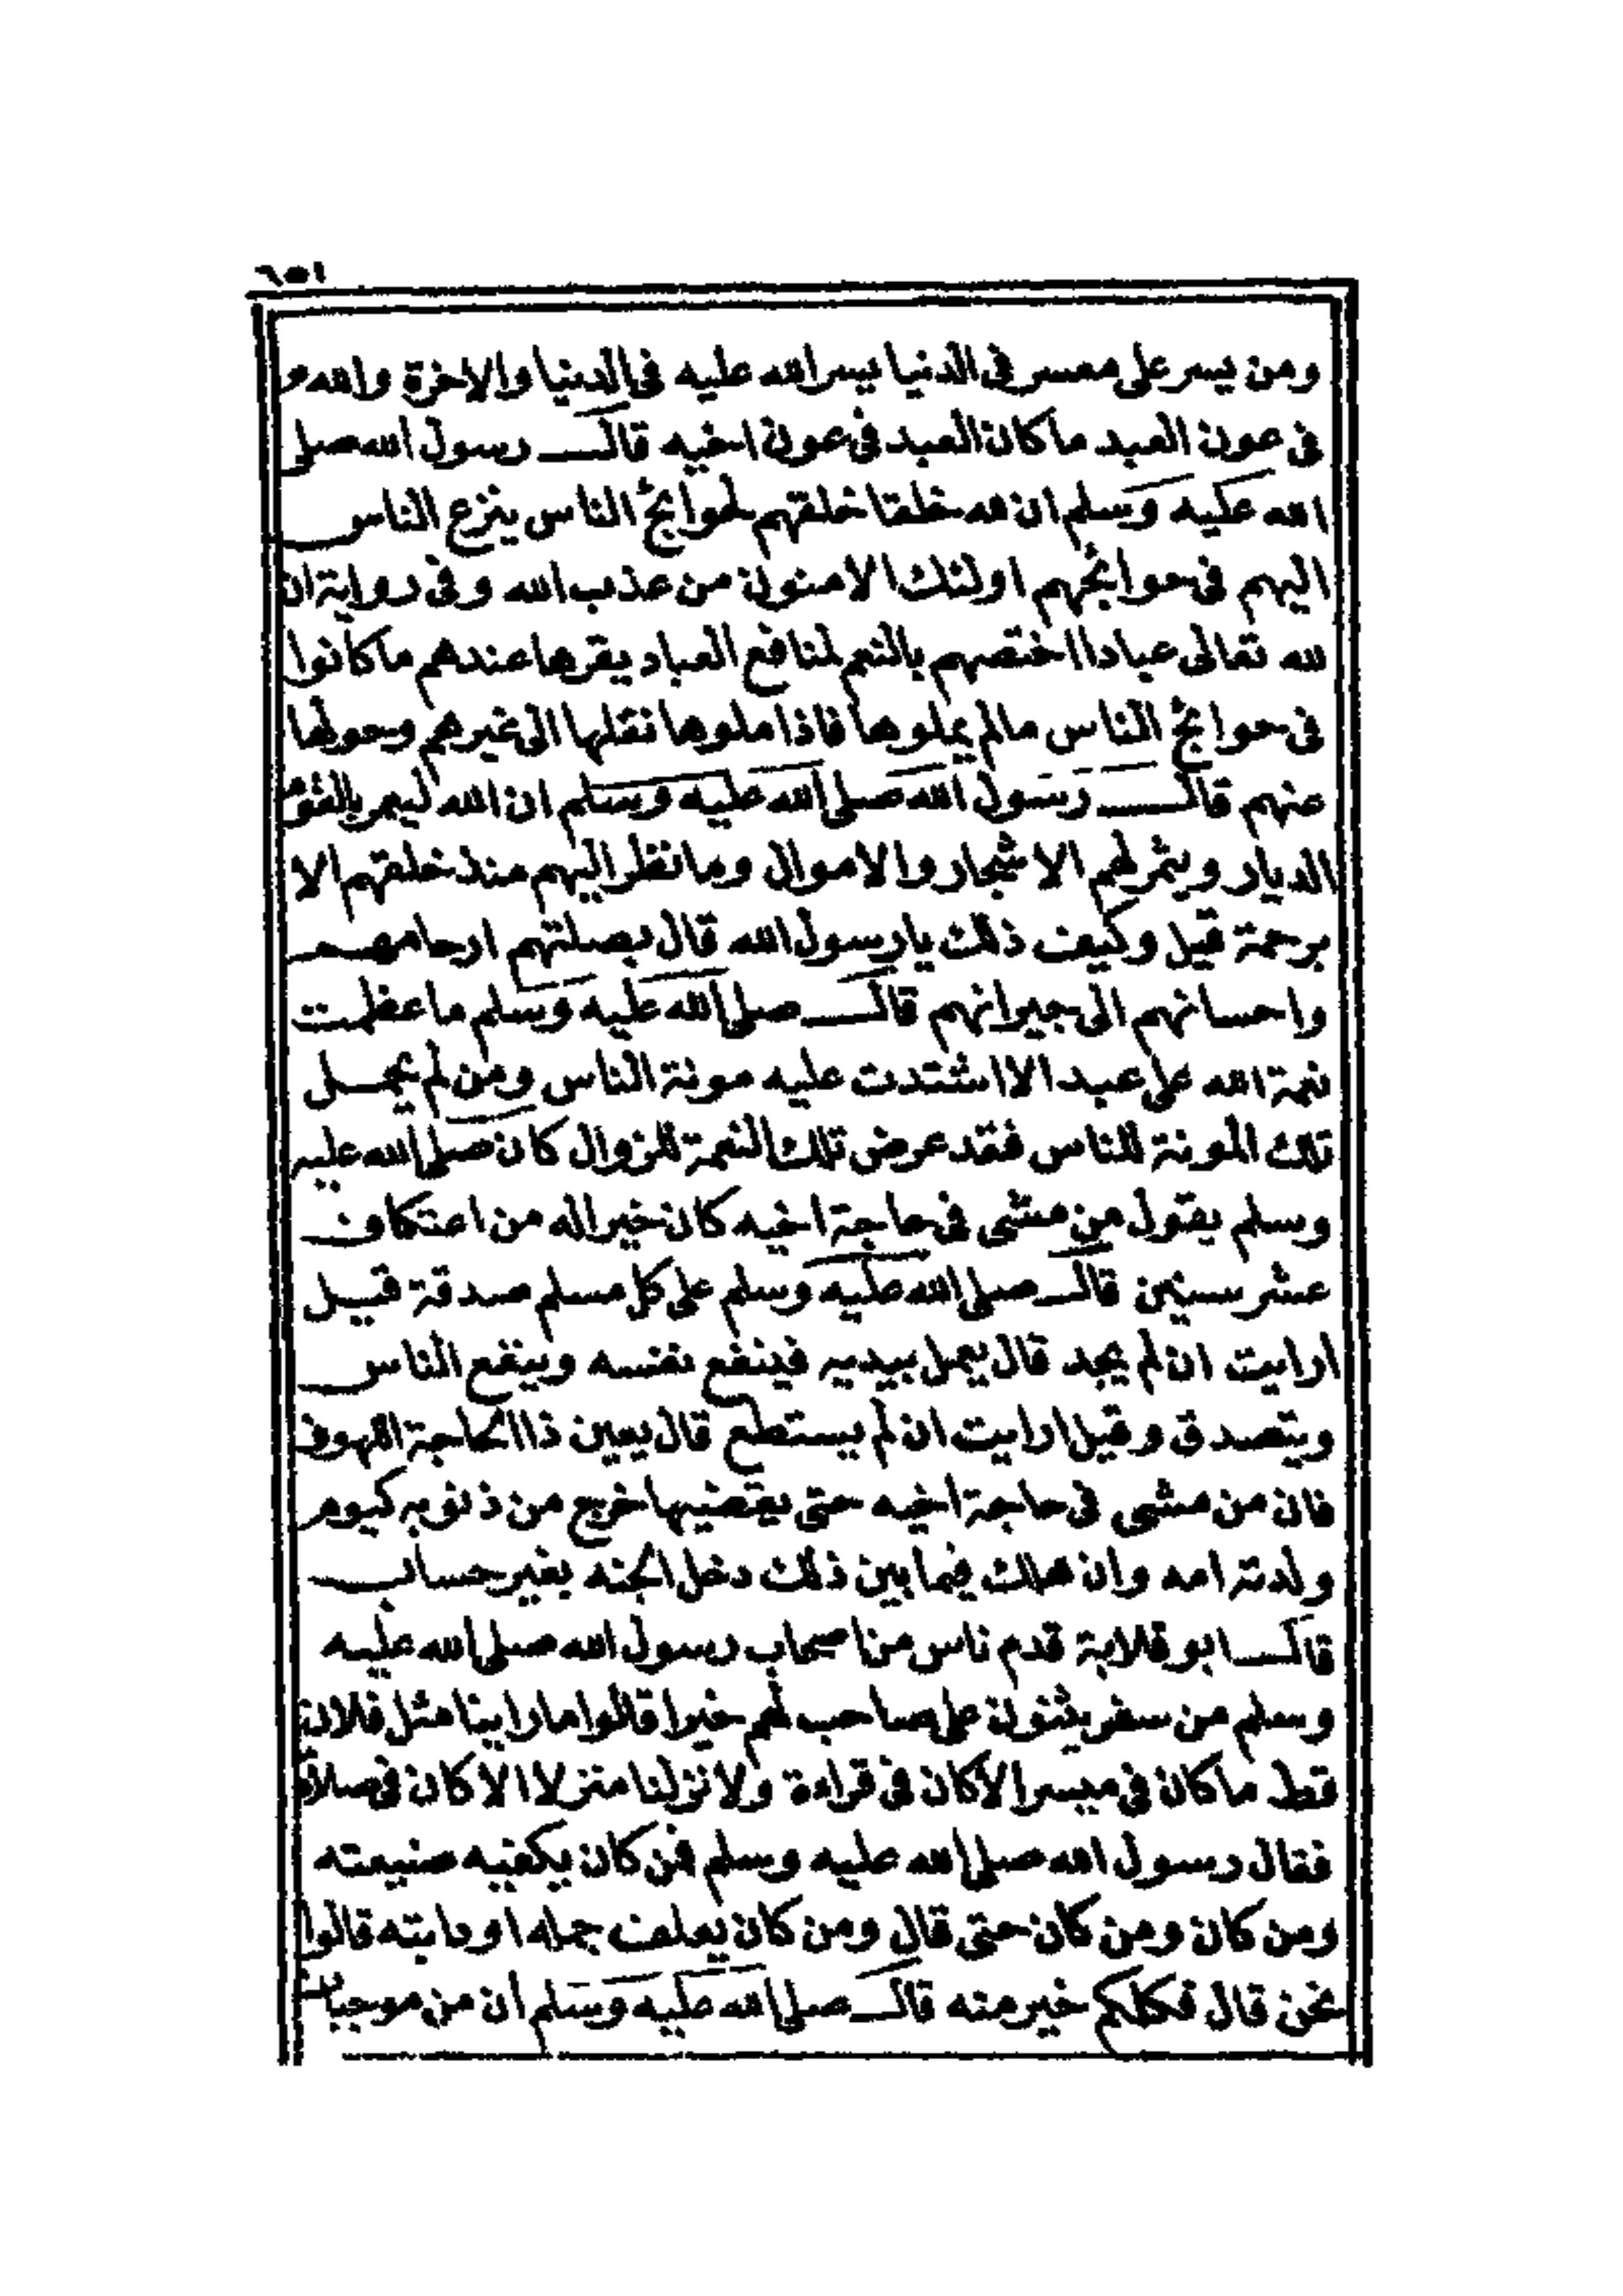 ومن يسر على معسر فى الدنيا يسر الله عليه فى الدنيا والاخرة والله
فى عون العبد ما كان العبد فى عون اخيه قال رسول الله صلى
الله عليه وسلم ان لله خلقا خلقهم لحوائج الناس يفزع الناس
اليهم فى حوائجهم اولئك الامنون من عذب الله وفى رواية ان
لله تعالى عبادا اختصهم بالنعم لمنافع العباد يقرها عندهم ما كانوا
فى حوائج الناس مالم يملوها فاذا ملوها نقلها الى غيرهم وحولها
عنهم قال رسول الله صلى الله عليه وسلم ان الله ليعمر بالقوم
الديار ويثمر لهم الاشجار والاموال وما نظر اليهم منذ خلقهم الا
برحمة قيل وكيف ذلك يا رسول الله قال بصلتهم ارحامهم
واحسانهم الى جيرانهم قال صلى الله عليه وسلم ما عظمت
نعمة الله على عبد الا اشتدت عليه مونة الناس ومن لم يحمل
تلك المونة للناس فقد عرض تلك النعمة للزوال كان صلى الله عليه
وسلم يقول من مشى فى حاجة اخيه كان خيرا له من اعتكاف
عشر سنين قال صلى الله عليه وسلم على كل مسلم صدقة قيل
ارايت ان لم يجد قال يعمل بيديه فينفع نفسه وينفع الناس
ويتصدق وقيل ارايت ان لم يستطع قال يعين ذا الحاجة الملهوف
فان من مشى فى حاجة اخيه حتى يقضيها خرج من ذنوبه كيوم
ولدته امه وان هلك فيما بين ذلك دخل الجنه بغير حساب
قال ابو قلابة قدم ناس من اصحاب رسول الله صلى الله عليه
وسلم من سفر يثنون على صاحب لهم خيرا قالوا ما راينا مثل فلان
قط ما كان فى مسير الا كان فى قراءة ولا نزلنا منزلا الا كان فى صلاة
فقال رسول الله صلى الله عليه وسلم فمن كان يكفيه ضيعته
ومن كان ومن كان حتى قال ومن كان يعلف جمله او دابته قالوا
نحن قال فكلكم خير منه قال صلى الله عليه وسلم ان من موجبات